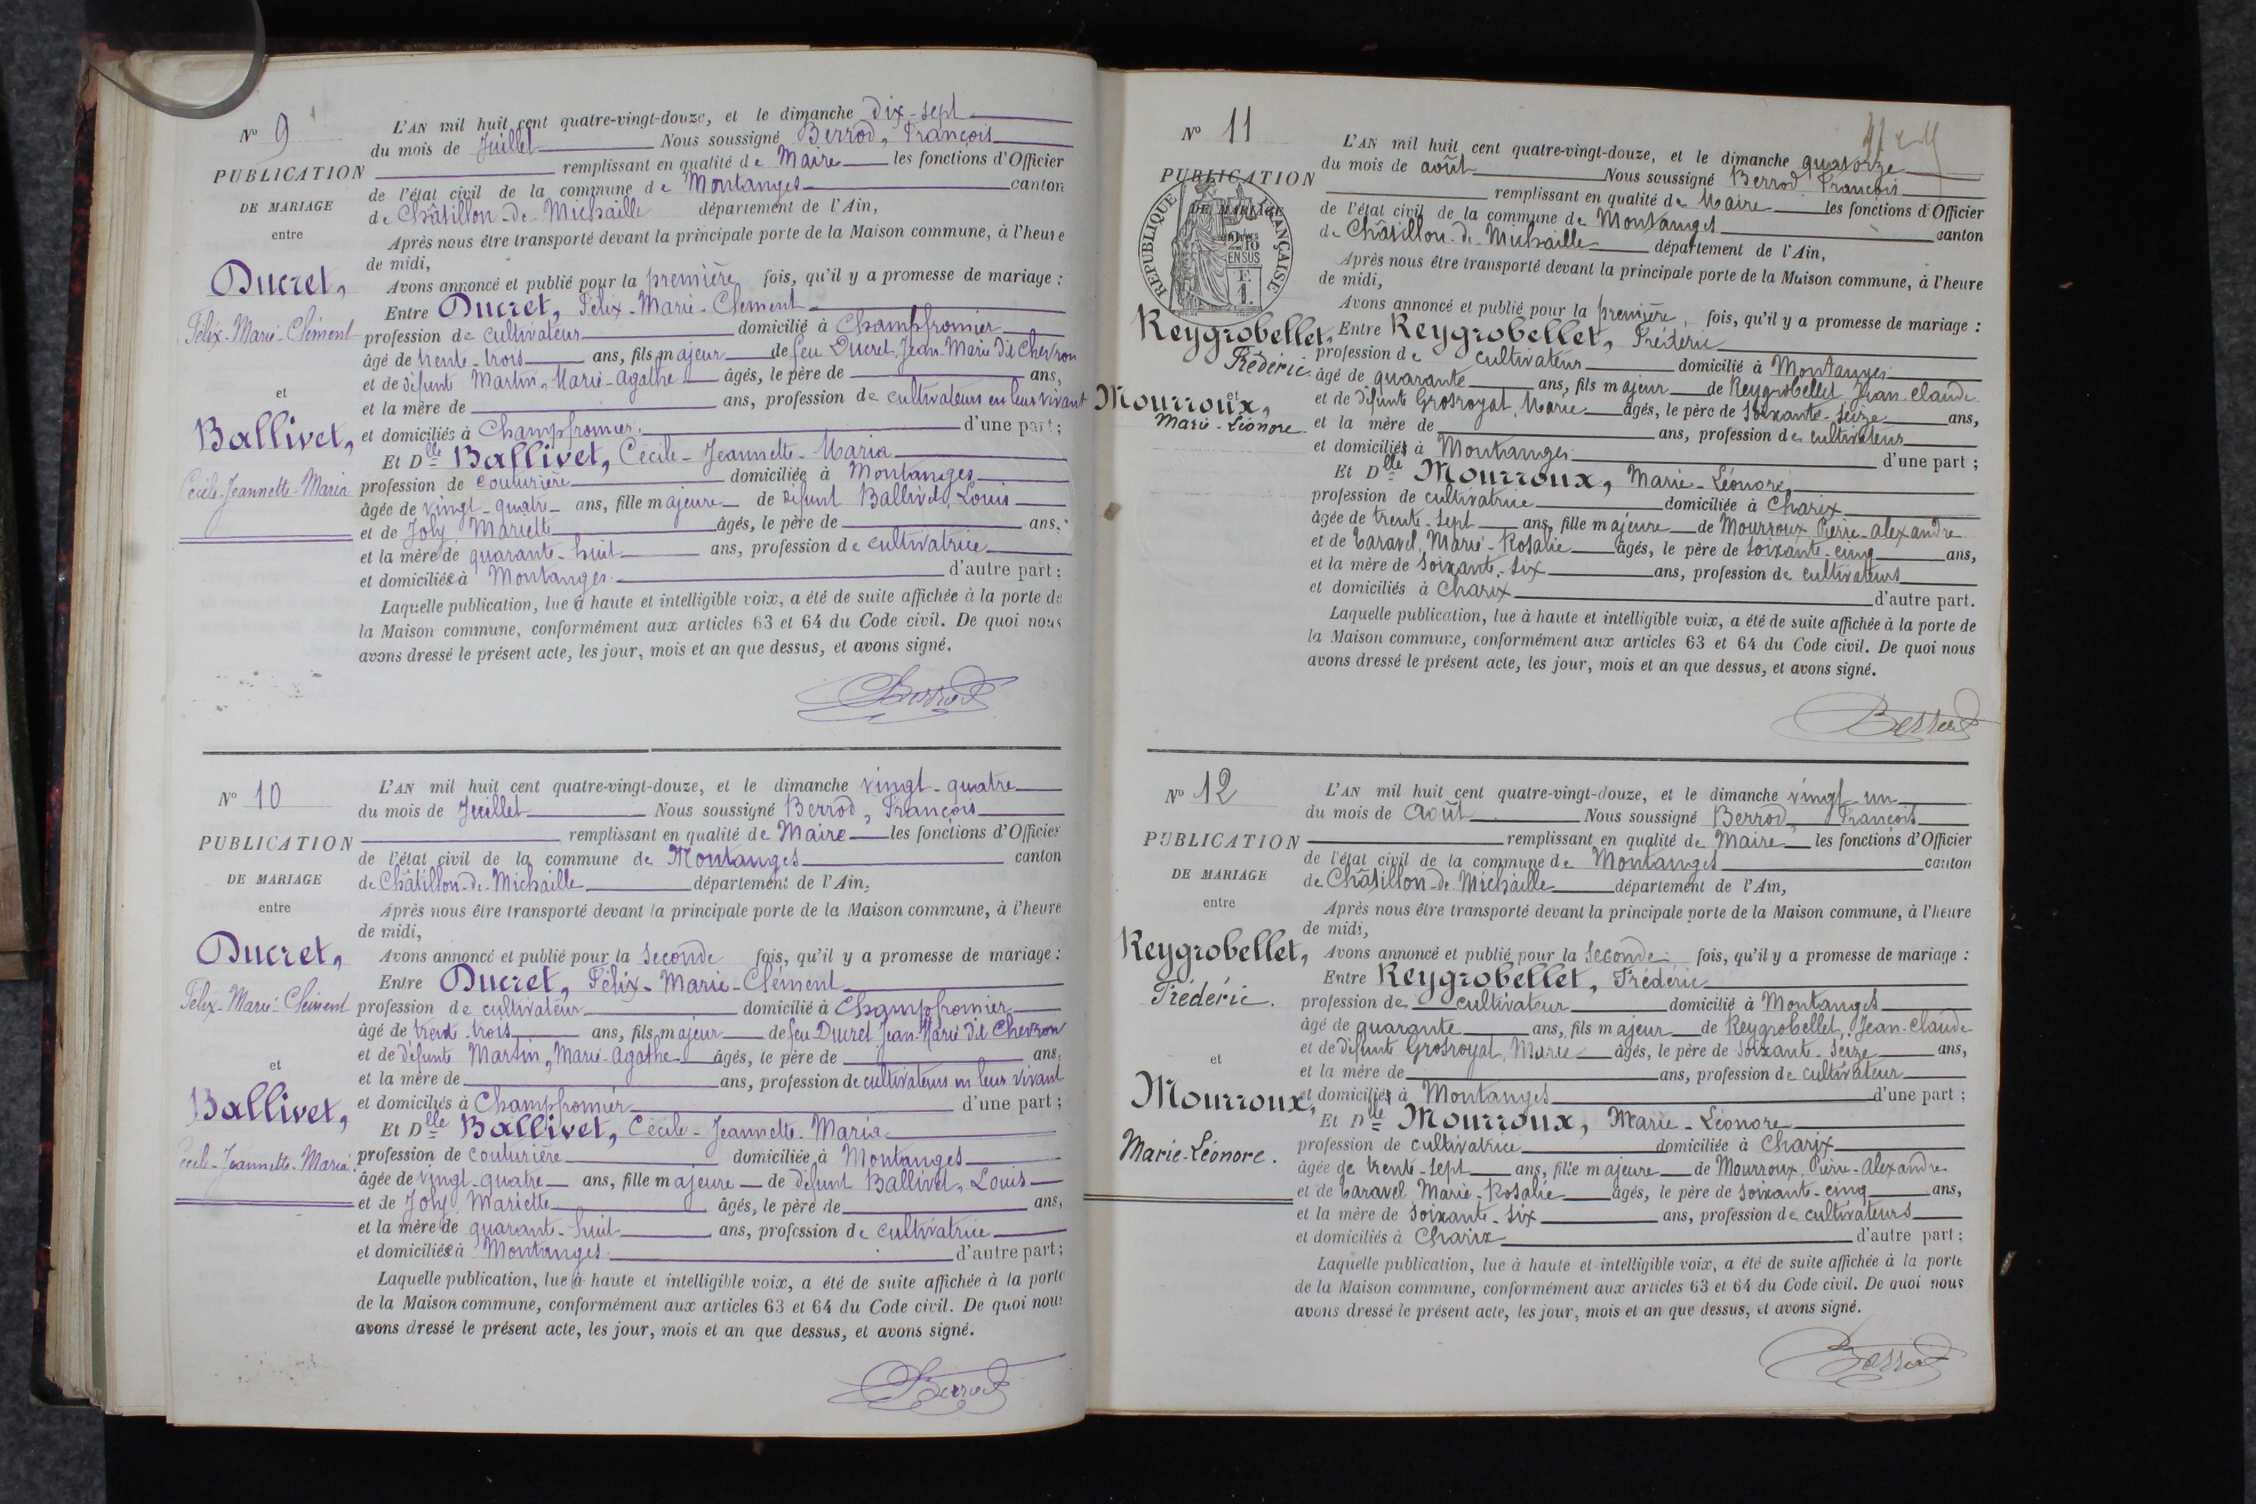 N° 9
PUBLICATION
DE MARIAGE
entre
Ducret,
Félix-Marie-Clément
et
Ballivet,
Cécile-Jeannette-Maria
L'AN mil huit cent quatre-vingt-douze, et le dimanche dix-sept
du mois de Juillet Nous soussigné Berrod, François
remplissant en qualité de Maire les fonctions d'Officier
de l'état civil de la commune de Montanges canton
de Châtillon-de-Michaille département de l'Ain,
Après nous être transporté devant la principale porte de la Maison commune, à l'heure
de midi,
Avons annoncé et publié pour la première fois, qu'il y a promesse de mariage :
Entre Ducret, Félix-Marie-Clément
profession de cultivateur domicilié à Champfromier
âgé de trente-trois ans, fils majeur de feu Ducret Jean-Marie dit Chevron
et de défunte Martin, Marie-Agathe âgés, le père de ans,
et la mère de ans, profession de cultivateurs en leur vivant
et domiciliés à Champfromier. d'une part ;
Et Dlle Ballivet, Cécile-Jeannette-Maria
profession de couturière domiciliée à Montanges
âgée de vingt-quatre ans, fille majeure de défunt Ballivet, Louis
et de Joly Mariette âgés, le père de ans,
et la mère de quarante-huit ans, profession de cultivatrice
et domiciliée à Montanges. d'autre part :
Laquelle publication, lue à haute et intelligible voix, a été de suite affichée à la porte de
la Maison commune, conformément aux articles 63 et 64 du Code civil. De quoi nous
avons dressé le présent acte, les jour, mois et an que dessus, et avons signé.
Berrod
N° 10
PUBLICATION
DE MARIAGE
entre
Ducret,
Félix-Marie-Clément
et
Ballivet,
Cécile-Jeannette-Maria
L'AN mil huit cent quatre-vingt-douze, et le dimanche vingt-quatre
du mois de Juillet Nous soussigné Berrod, François
remplissant en qualité de Maire les fonctions d'Officier
de l'état civil de la commune de Montanges canton
de Châtillon-de-Michaille département de l'Ain,
Après nous être transporté devant la principale porte de la Maison commune, à l'heure
de midi,
Avons annoncé et publié pour la seconde fois, qu'il y a promesse de mariage :
Entre Ducret, Félix-Marie-Clément
profession de cultivateur domicilié à Champfromier
âgé de trente-trois ans, fils majeur de feu Ducret Jean-Marie dit Chevron
et de défunte Martin, Marie-Agathe âgés, le père de ans,
et la mère de ans, profession de cultivateurs en leur vivant
et domiciliés à Champfromier d'une part ;
Et Dlle Ballivet, Cécile-Jeannette-Maria
profession de couturière domiciliée à Montanges
âgée de vingt-quatre ans, fille majeure de défunt Ballivet, Louis
et de Joly Mariette âgés, le père de ans,
et la mère de quarante-huit ans, profession de cultivatrice
et domiciliée à Montanges d'autre part ;
Laquelle publication, lue à haute et intelligible voix, a été de suite affichée à la porte
de la Maison commune, conformément aux articles 63 et 64 du Code civil. De quoi nous
avons dressé le présent acte, les jour, mois et an que dessus, et avons signé.
Berrod
N° 11
PUBLICATION
DE MARIAGE
RÉPUBLIQUE FRANÇAISE
Reygrobellet,
Frédéric
et
Mourroux,
Marie-Léonore
L'AN mil huit cent quatre-vingt-douze, et le dimanche quatorze
du mois de août Nous soussigné Berrod François
remplissant en qualité de Maire les fonctions d'Officier
de l'état civil de la commune de Montanges canton
de Châtillon-de-Michaille département de l'Ain,
Après nous être transporté devant la principale porte de la Maison commune, à l'heure
de midi,
Avons annoncé et publié pour la première fois, qu'il y a promesse de mariage :
Entre Reygrobellet, Frédéric
profession de cultivateur domicilié à Montanges
âgé de quarante ans, fils majeur de Reygrobellet Jean-Claude
et de défunte Grosroyat, Marie âgés, le père de soixante-seize ans,
et la mère de ans, profession de cultivateur
et domiciliés à Montanges d'une part ;
Et Dlle Mourroux, Marie-Léonore,
profession de cultivatrice domiciliée à Charix
âgée de trente-sept ans, fille majeure de Mourroux Pierre-alexandre
et de Caravel, Marie-Rosalie âgés, le père de soixante-cinq ans,
et la mère de soixante-six ans, profession de cultivateurs
et domiciliés à Charix d'autre part.
Laquelle publication, lue à haute et intelligible voix, a été de suite affichée à la porte de
la Maison commune, conformément aux articles 63 et 64 du Code civil. De quoi nous
avons dressé le présent acte, les jour, mois et an que dessus, et avons signé.
Berrod
N° 12
PUBLICATION
DE MARIAGE
entre
Reygrobellet,
Frédéric.
et
Mourroux,
Marie-Léonore.
L'AN mil huit cent quatre-vingt-douze, et le dimanche vingt-un
du mois de Août Nous soussigné Berrod, François
remplissant en qualité de Maire les fonctions d'Officier
de l'état civil de la commune de Montanges canton
de Châtillon-de-Michaille département de l'Ain,
Après nous être transporté devant la principale porte de la Maison commune, à l'heure
de midi,
Avons annoncé et publié pour la seconde fois, qu'il y a promesse de mariage :
Entre Reygrobellet, Frédéric
profession de cultivateur domicilié à Montanges
âgé de quarante ans, fils majeur de Reygrobellet, Jean-Claude
et de défunte Grosroyat, Marie âgés, le père de soixante-seize ans,
et la mère de ans, profession de cultivateur
et domiciliés à Montanges d'une part ;
Et Dlle Mourroux, Marie-Léonore
profession de cultivatrice domiciliée à Charix
âgée de trente-sept ans, fille majeure de Mourroux, Pierre-Alexandre
et de Caravel Marie-Rosalie âgés, le père de soixante-cinq ans,
et la mère de soixante-six ans, profession de cultivateurs
et domiciliés à Charix d'autre part ;
Laquelle publication, lue à haute et intelligible voix, a été de suite affichée à la porte
de la Maison commune, conformément aux articles 63 et 64 du Code civil. De quoi nous
avons dressé le présent acte, les jour, mois et an que dessus, et avons signé.
Berrod